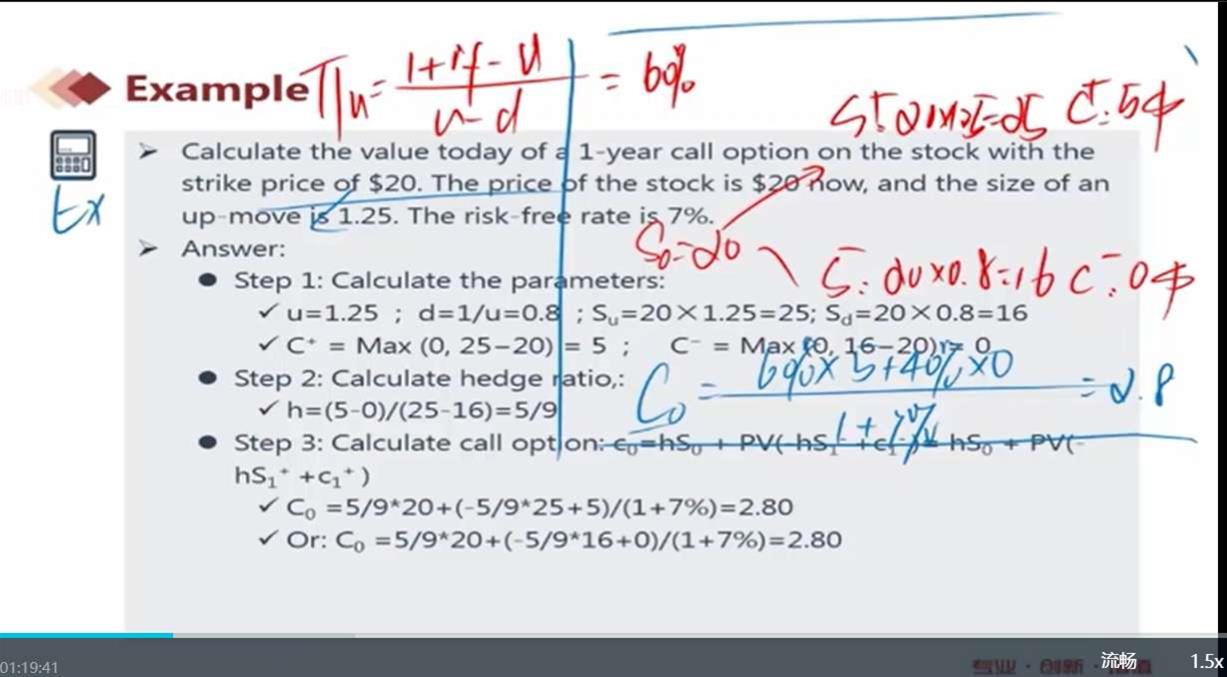 Example
Πu = 1+rf-u / u-d = 60%
S+: 20×1.25=25 C+: 5中
➢ Calculate the value today of a 1-year call option on the stock with the
strike price of $20. The price of the stock is $20 now, and the size of an
up-move is 1.25. The risk-free rate is 7%.
Ex
S0=20
S-: 20×0.8=16 C-: 0中
➢ Answer:
● Step 1: Calculate the parameters:
✓ u=1.25 ; d=1/u=0.8 ; Su=20×1.25=25; Sd=20×0.8=16
✓ C⁺ = Max (0, 25−20) = 5 ; C⁻ = Max (0, 16−20) = 0
● Step 2: Calculate hedge ratio,:
✓ h=(5-0)/(25-16)=5/9
C0 = 60%×5+40%×0 / 1+7% = 2.8
● Step 3: Calculate call option: c₀=hS₀ + PV(-hS₁⁻ +c₁⁻)= hS₀ + PV(-
hS₁⁺ +c₁⁺)
✓ C₀ =5/9*20+(-5/9*25+5)/(1+7%)=2.80
✓ Or: C₀ =5/9*20+(-5/9*16+0)/(1+7%)=2.80
01:19:41
专业·创新·增值
流畅
1.5x